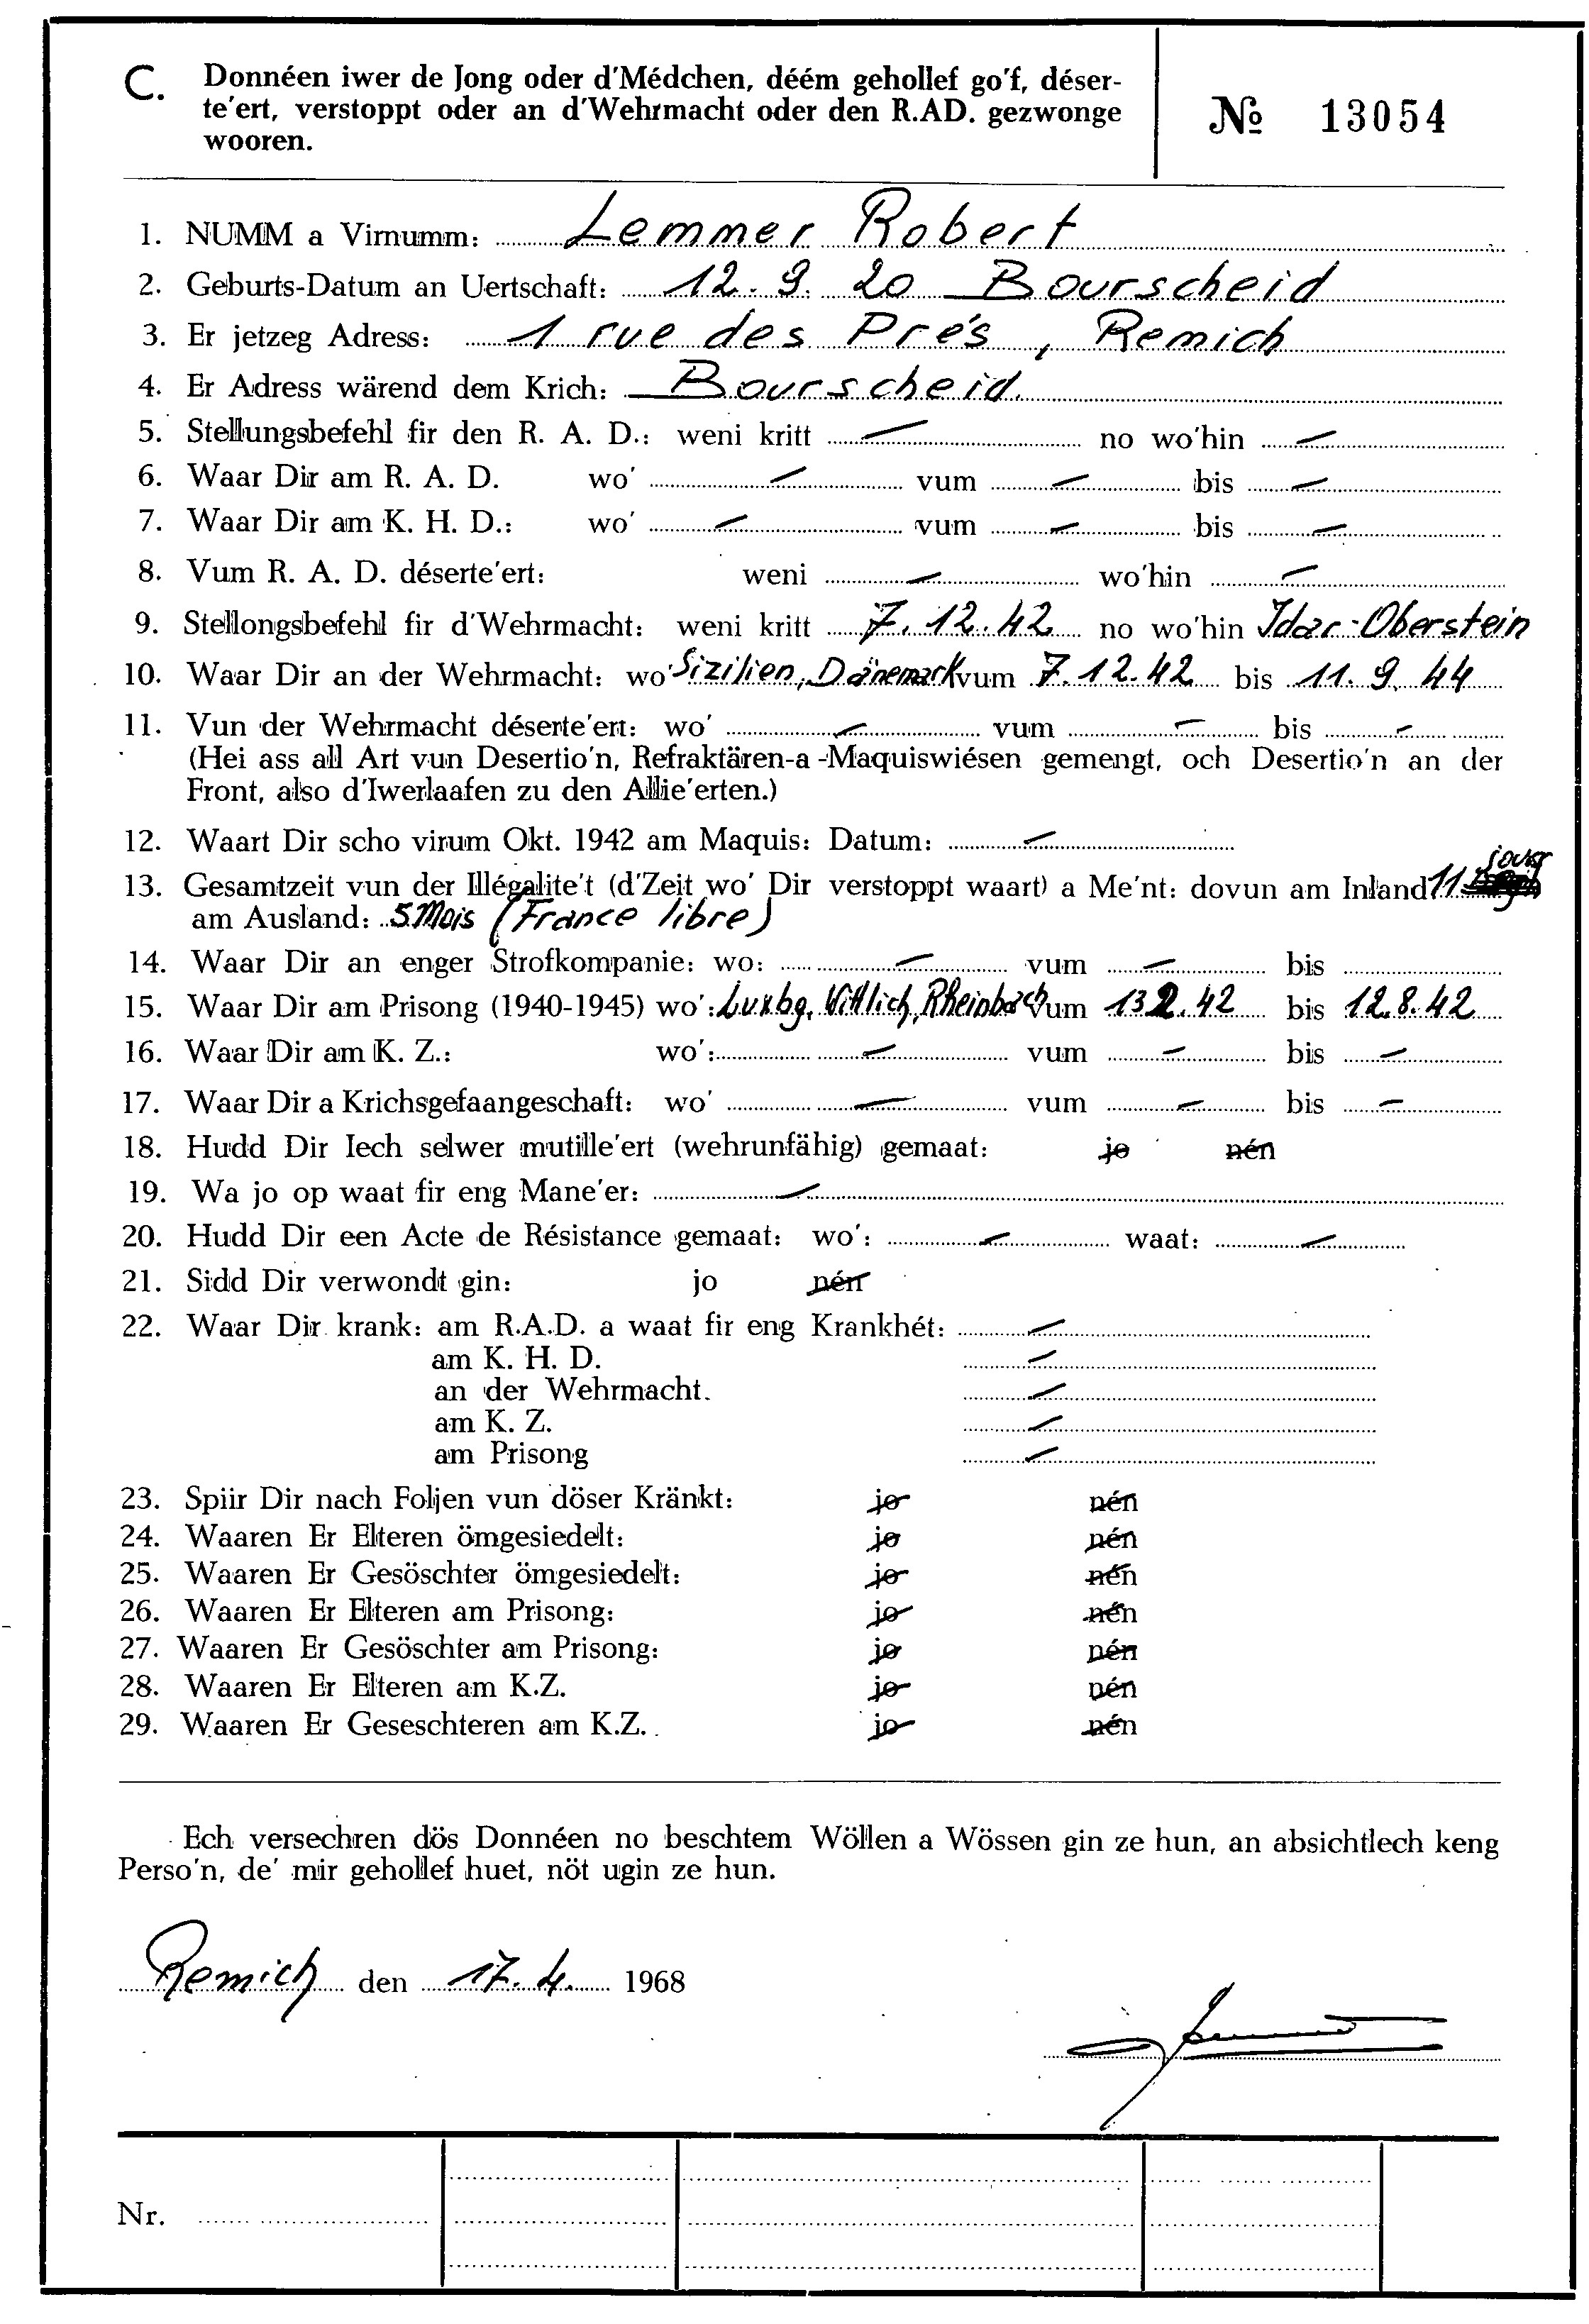 C. Donnéen iwer de Jong oder d'Médchen, déém gehollef go'f, déser-
te'ert, verstoppt oder an d'Wehrmacht oder den R.AD. gezwonge
wooren.
№ 13054
1. NUMM a Virnumm: Lemmer Robert
2. Geburts-Datum an Uertschaft: 12.9.20 Bourscheid
3. Er jetzeg Adress: 1 rue des Prés, Remich
4. Er Adress wärend dem Krich: Bourscheid.
5. Stellungsbefehl fir den R. A. D.: weni kritt — no wo'hin —
6. Waar Dir am R. A. D. wo' — vum — bis —
7. Waar Dir am K. H. D.: wo' — vum — bis —
8. Vum R. A. D. déserte'ert: weni — wo'hin —
9. Stellongsbefehl fir d'Wehrmacht: weni kritt 7.12.42 no wo'hin Idar-Oberstein
10. Waar Dir an der Wehrmacht: wo' Sizilien, Dänemark vum 7.12.42 bis 11.9.44
11. Vun der Wehrmacht déserte'ert: wo' — vum — bis —
(Hei ass all Art vun Desertio'n, Refraktären-a-Maquiswiésen gemengt, och Desertio'n an der
Front, also d'Iwerlaafen zu den Allie'erten.)
12. Waart Dir scho virum Okt. 1942 am Maquis: Datum: —
13. Gesamtzeit vun der Illégalite't (d'Zeit wo' Dir verstoppt waart) a Me'nt: dovun am Inland 11 jours
am Ausland: 5 Mois (France libre)
14. Waar Dir an enger Strofkompanie: wo: — vum — bis
15. Waar Dir am Prisong (1940-1945) wo': Luxbg, Wittlich, Rheinbach vum 13.2.42 bis 12.8.42
16. Waar Dir am K. Z.: wo': — vum — bis —
17. Waar Dir a Krichsgefaangeschaft: wo' — vum — bis —
18. Hudd Dir Iech selwer mutille'ert (wehrunfähig) gemaat: jo nén
19. Wa jo op waat fir eng Mane'er: —
20. Hudd Dir een Acte de Résistance gemaat: wo': — waat: —
21. Sidd Dir verwondt gin: jo nén
22. Waar Dir krank: am R.A.D. a waat fir eng Krankhét: —
am K. H. D. —
an der Wehrmacht. —
am K. Z. —
am Prisong —
23. Spiir Dir nach Foljen vun döser Kränkt: jo nén
24. Waaren Er Elteren ömgesiedelt: jo nén
25. Waaren Er Gesöschter ömgesiedelt: jo nén
26. Waaren Er Elteren am Prisong: jo nén
27. Waaren Er Gesöschter am Prisong: jo nén
28. Waaren Er Elteren am K.Z. jo nén
29. Waaren Er Geseschteren am K.Z. jo nén
Ech versechren dös Donnéen no beschtem Wöllen a Wössen gin ze hun, an absichtlech keng
Perso'n, de' mir gehollef huet, nöt ugin ze hun.
Remich den 17.4. 1968
Nr.